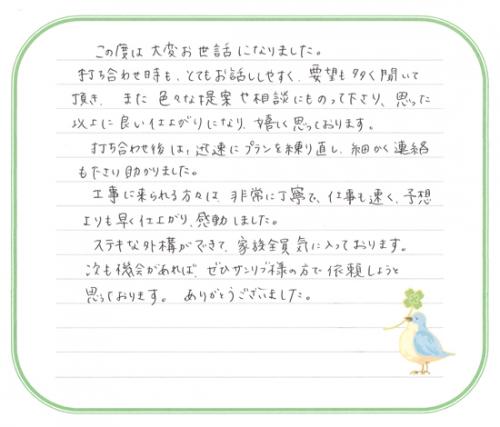 この度は大変お世話になりました。
打ち合わせ時も、とてもお話ししやすく、要望も多く聞いて
頂き、また色々な提案や相談にものって下さり、思った
以上に良い仕上がりになり、嬉しく思っております。
打ち合わせ後は、迅速にプランを練り直し、細かく連絡
も下さり助かりました。
工事に来られる方々は、非常に丁寧で、仕事も速く、予想
よりも早く仕上がり、感動しました。
ステキな外構ができて、家族全員気に入っております。
次も機会があれば、ぜひサンリブ様の方で依頼しようと
思っております。ありがとうございました。